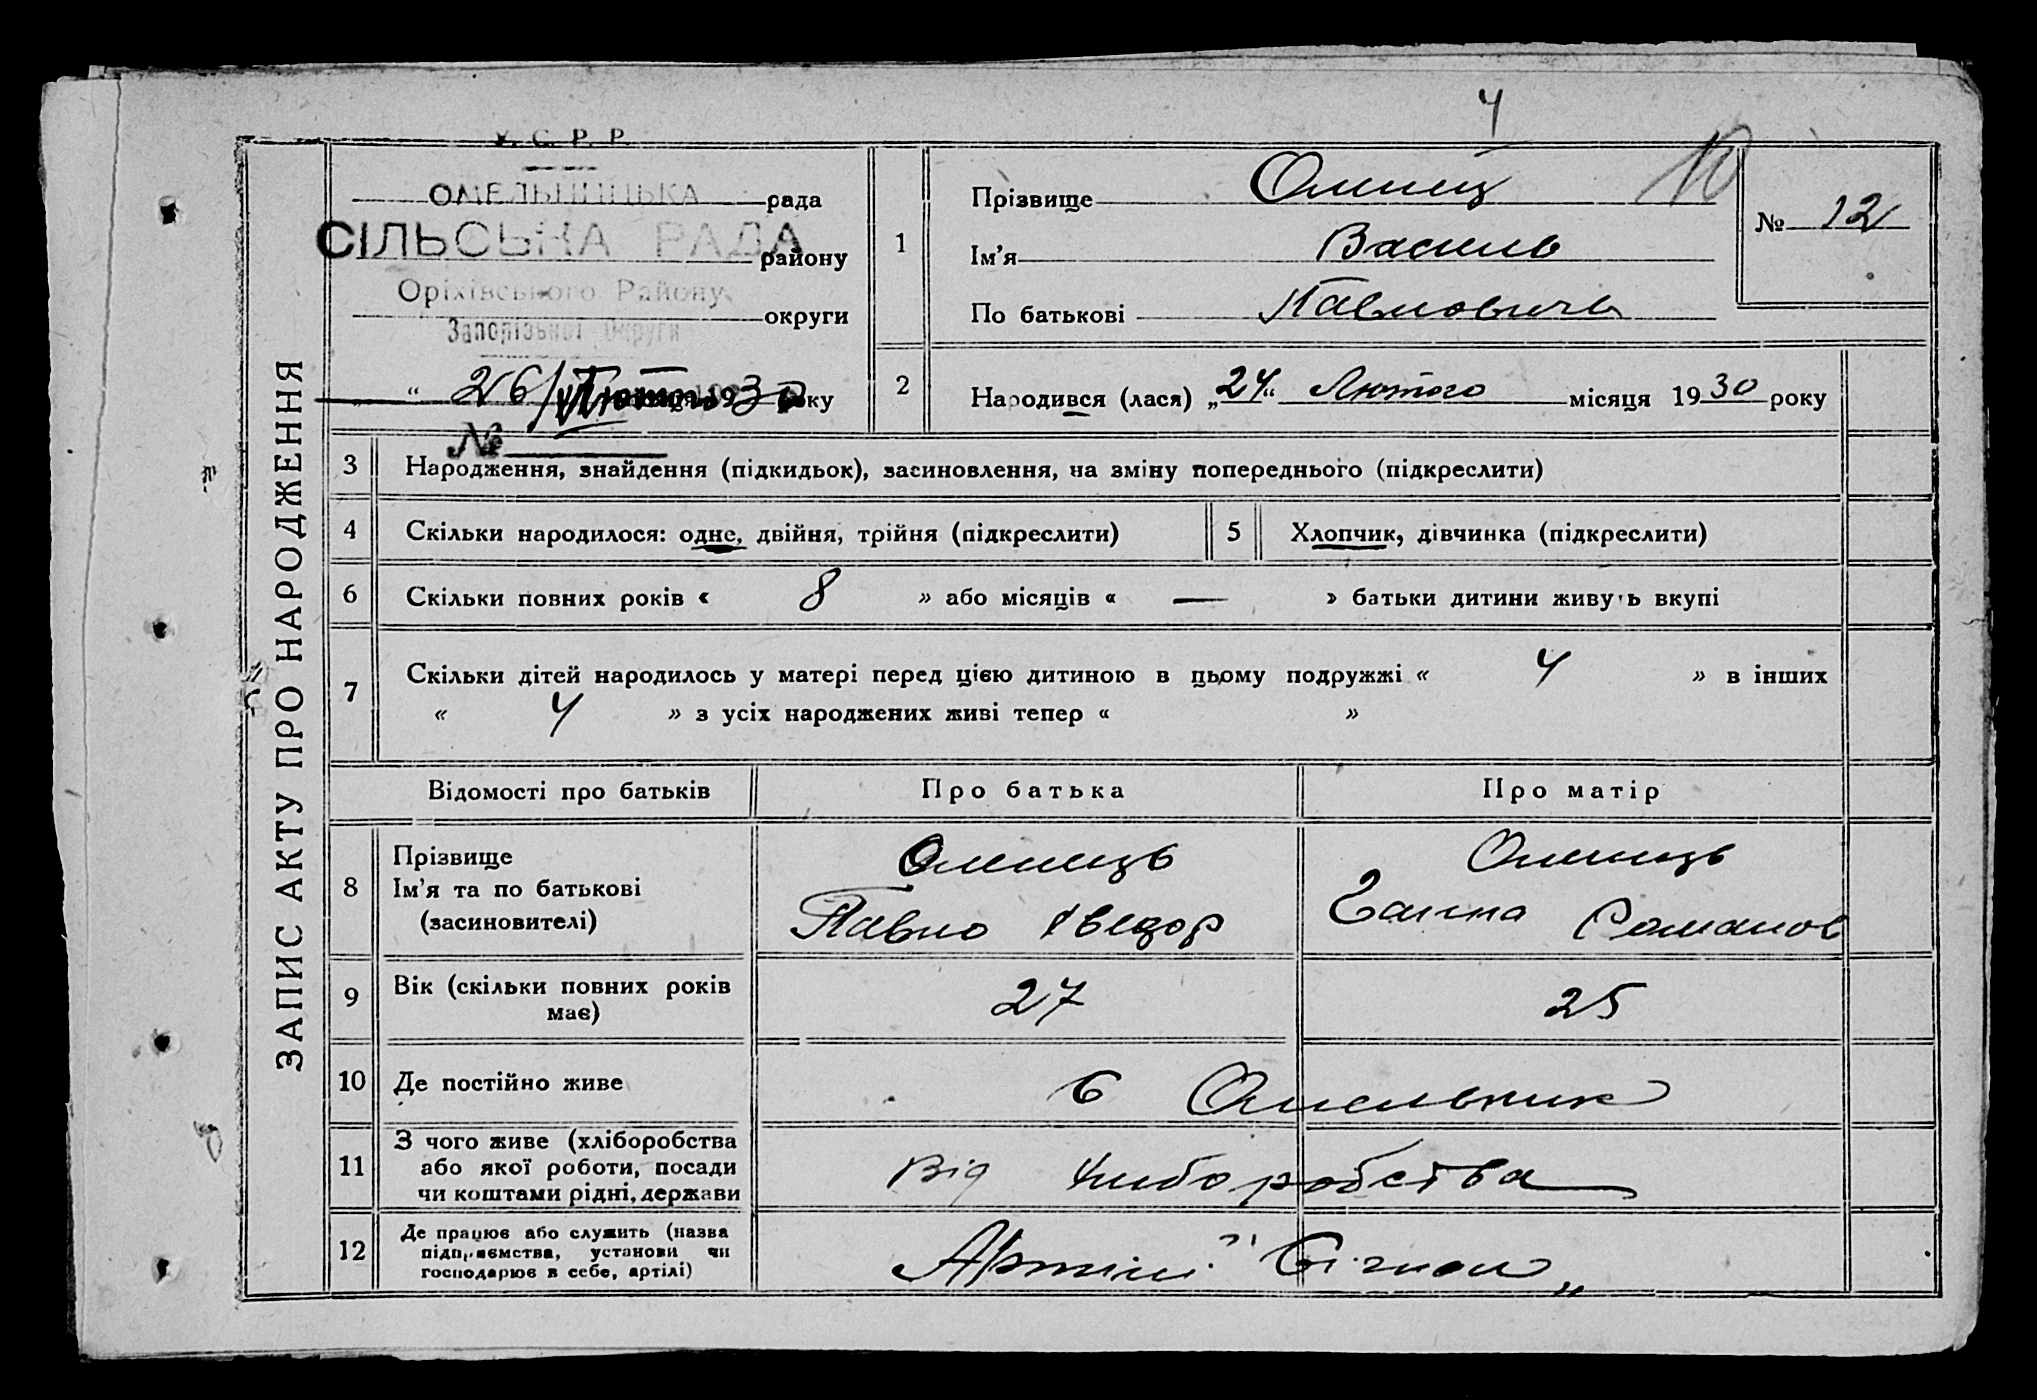 4
У. С. Р. Р.
ОМЕЛЬНИЦЬКА рада
СІЛЬСЬКА РАДА
району
Оріхівського Району
округи
Запорізької Округи
" 26/ Лютого 1930 року
№
1 Прізвище Олинец
Ім'я Василь
По батькові Павлович
10
№ 12
2 Народився (лася) „24" Лютого місяця 1930 року
ЗАПИС АКТУ ПРО НАРОДЖЕННЯ
3 Народження, знайдення (підкидьок), засиновлення, на зміну попереднього (підкреслити)
4 Скільки народилося: одне, двійня, трійня (підкреслити) 5 Хлопчик, дівчинка (підкреслити)
6 Скільки повних років « 8 » або місяців « — » батьки дитини живуть вкупі
7 Скільки дітей народилось у матері перед цією дитиною в цьому подружжі « 4 » в інших
« 4 » з усіх народжених живі тепер « »
Відомості про батьків Про батька Про матір
8 Прізвище
Ім'я та по батькові
(засиновителі)
Олинець
Павло Хведор
Олинець
Ганна Романов
9 Вік (скільки повних років
має)
27 25
10 Де постійно живе с Омельник
11 З чого живе (хліборобства
або якої роботи, посади
чи коштами рідні, держави
Від хліборобства
12 Де працює або служить (назва
підприємства, установи чи
господарює в себе, артілі)
Артілі "Сігнал„